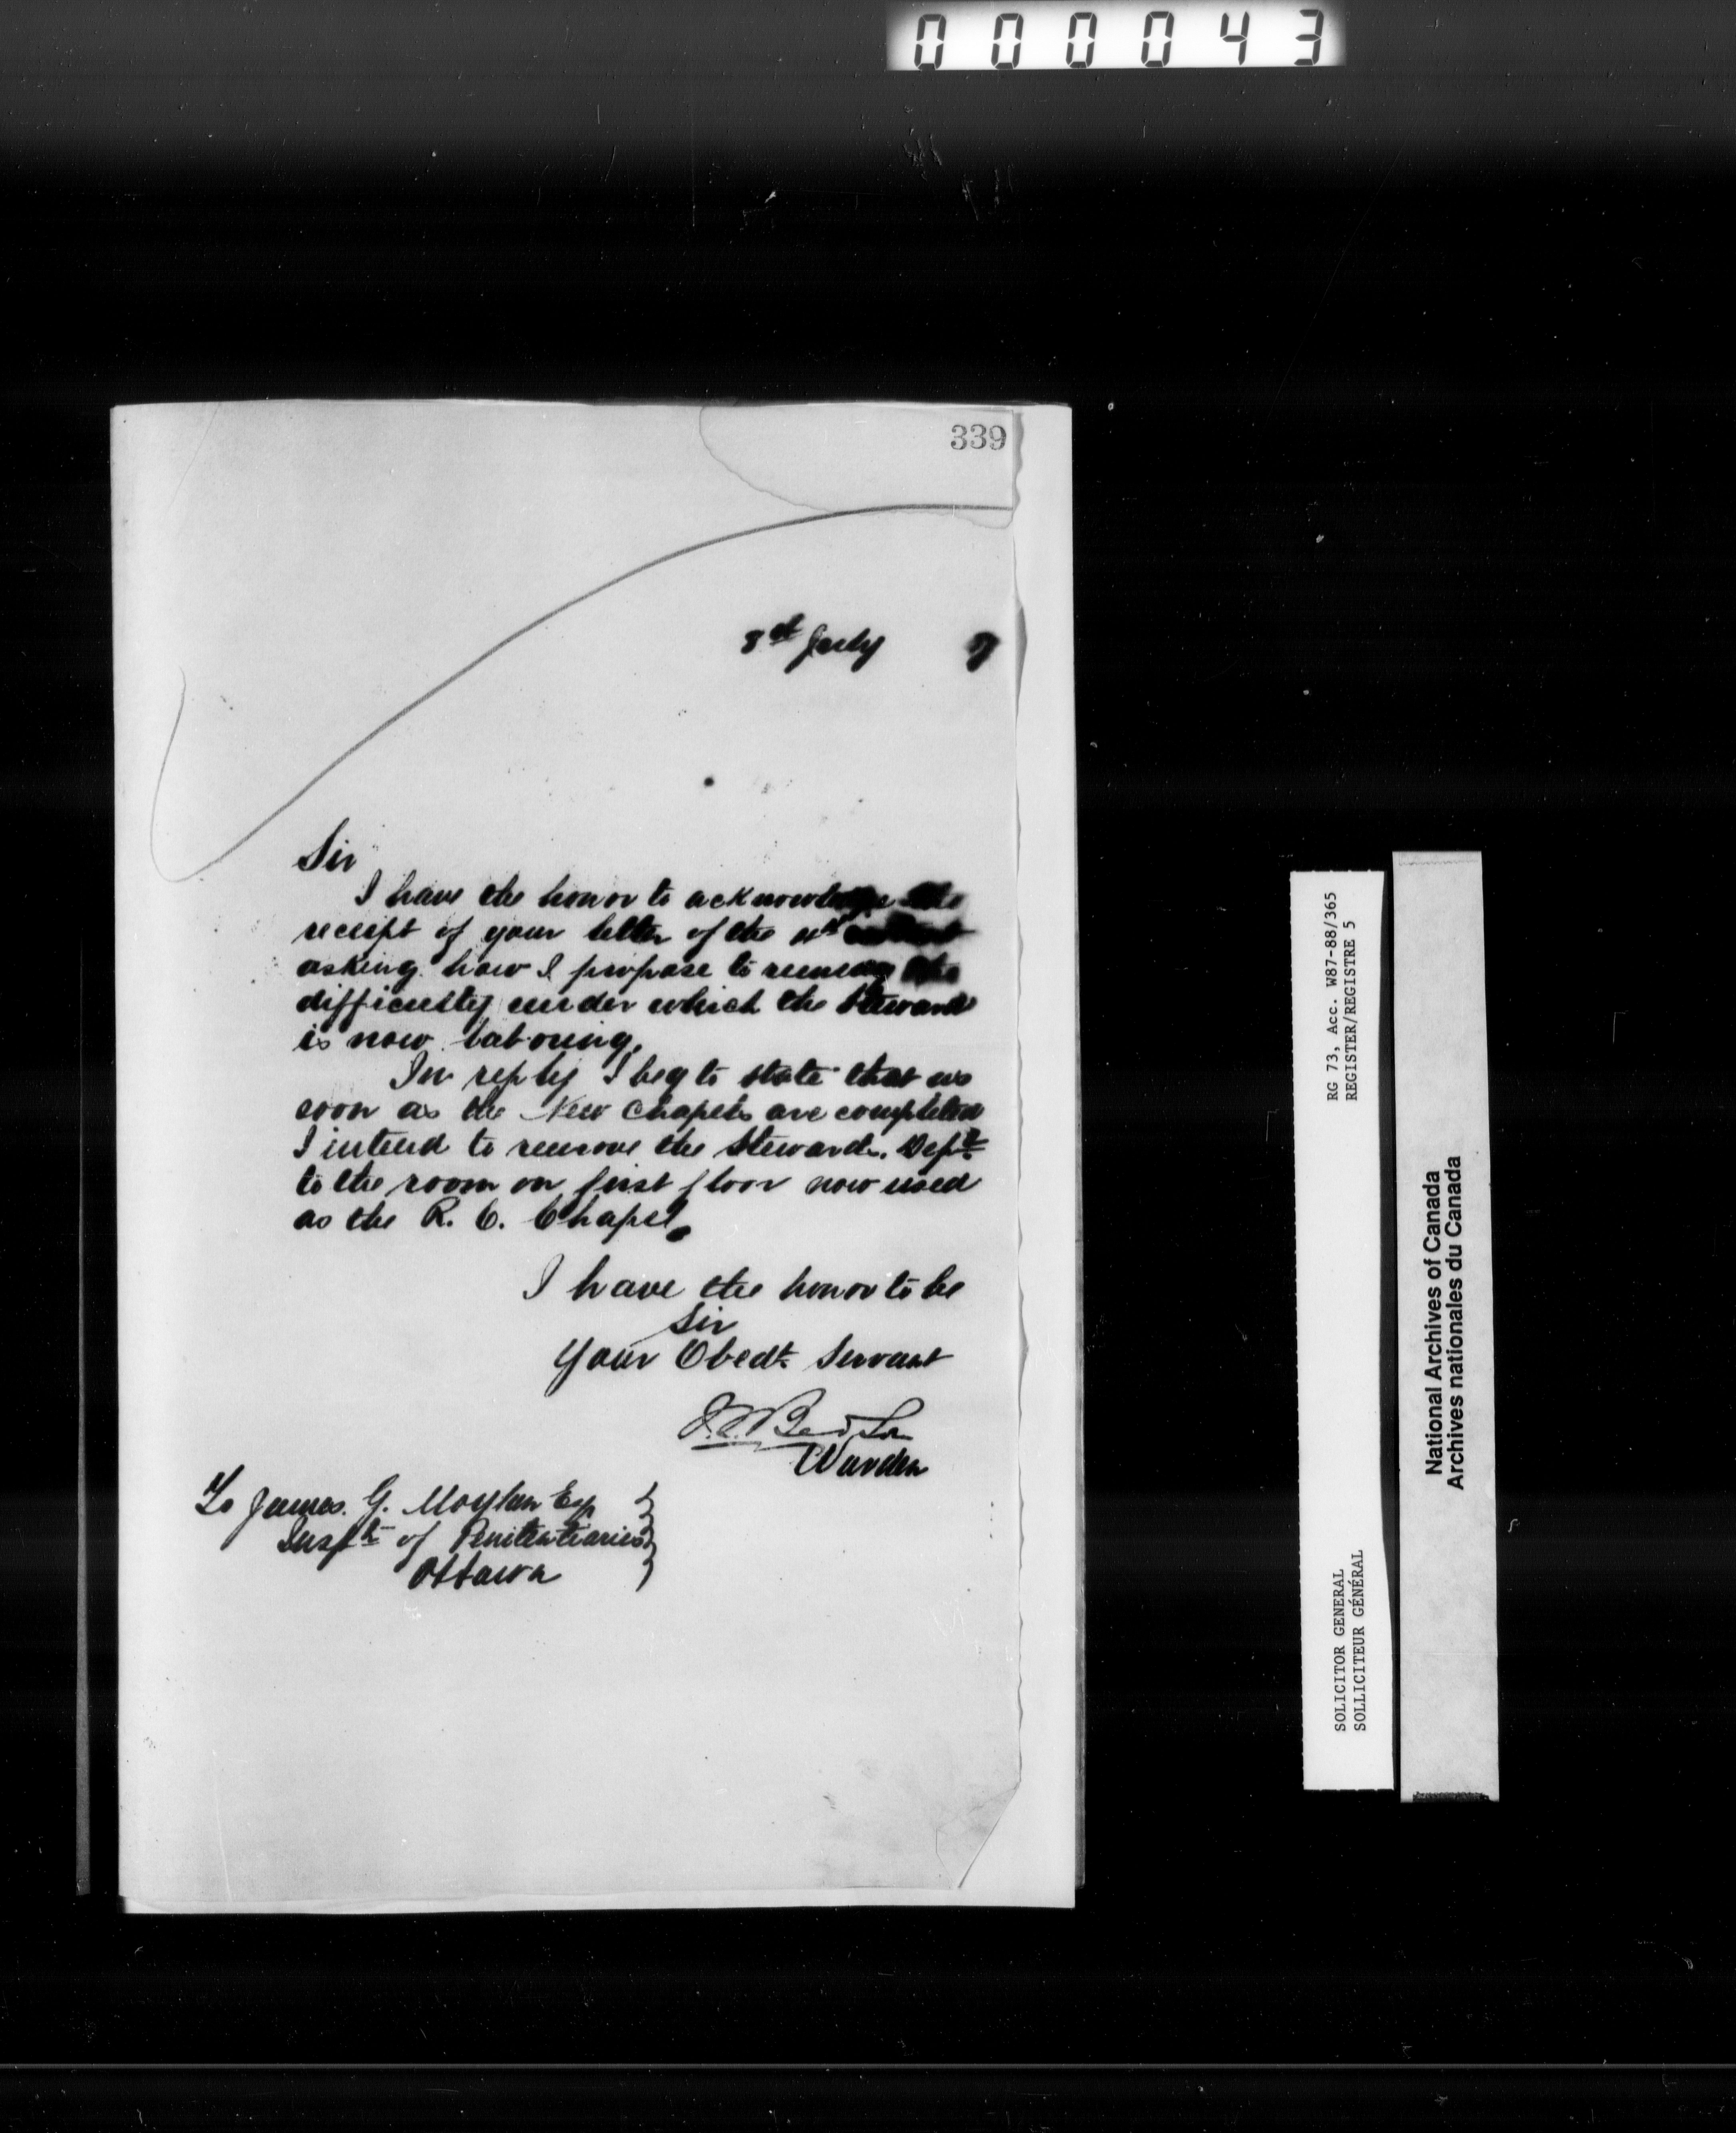 000043
339
8th July 7
Sir
I have the honor to acknowledge the
receipt of your letter of the 4th instant
asking how I propose to remedy the
difficulty under which the Steward
is now laboring.
In reply I beg to state that as
soon as the New Chapels are completed
I intend to remove the Stewards. Dept
to the room on first floor now used
as the R. C. Chapel.
I have the honor to be
Sir
Your Obedt. Servant
S. L. Bedson
Warden
To James. G. Moylan Esq
Inspt of Penitentiaries
Ottawa
RG 73, Acc. W87-88/365
REGISTER/REGISTRE 5
SOLICITOR GENERAL
SOLLICITEUR GÉNÉRAL
National Archives of Canada
Archives nationales du Canada